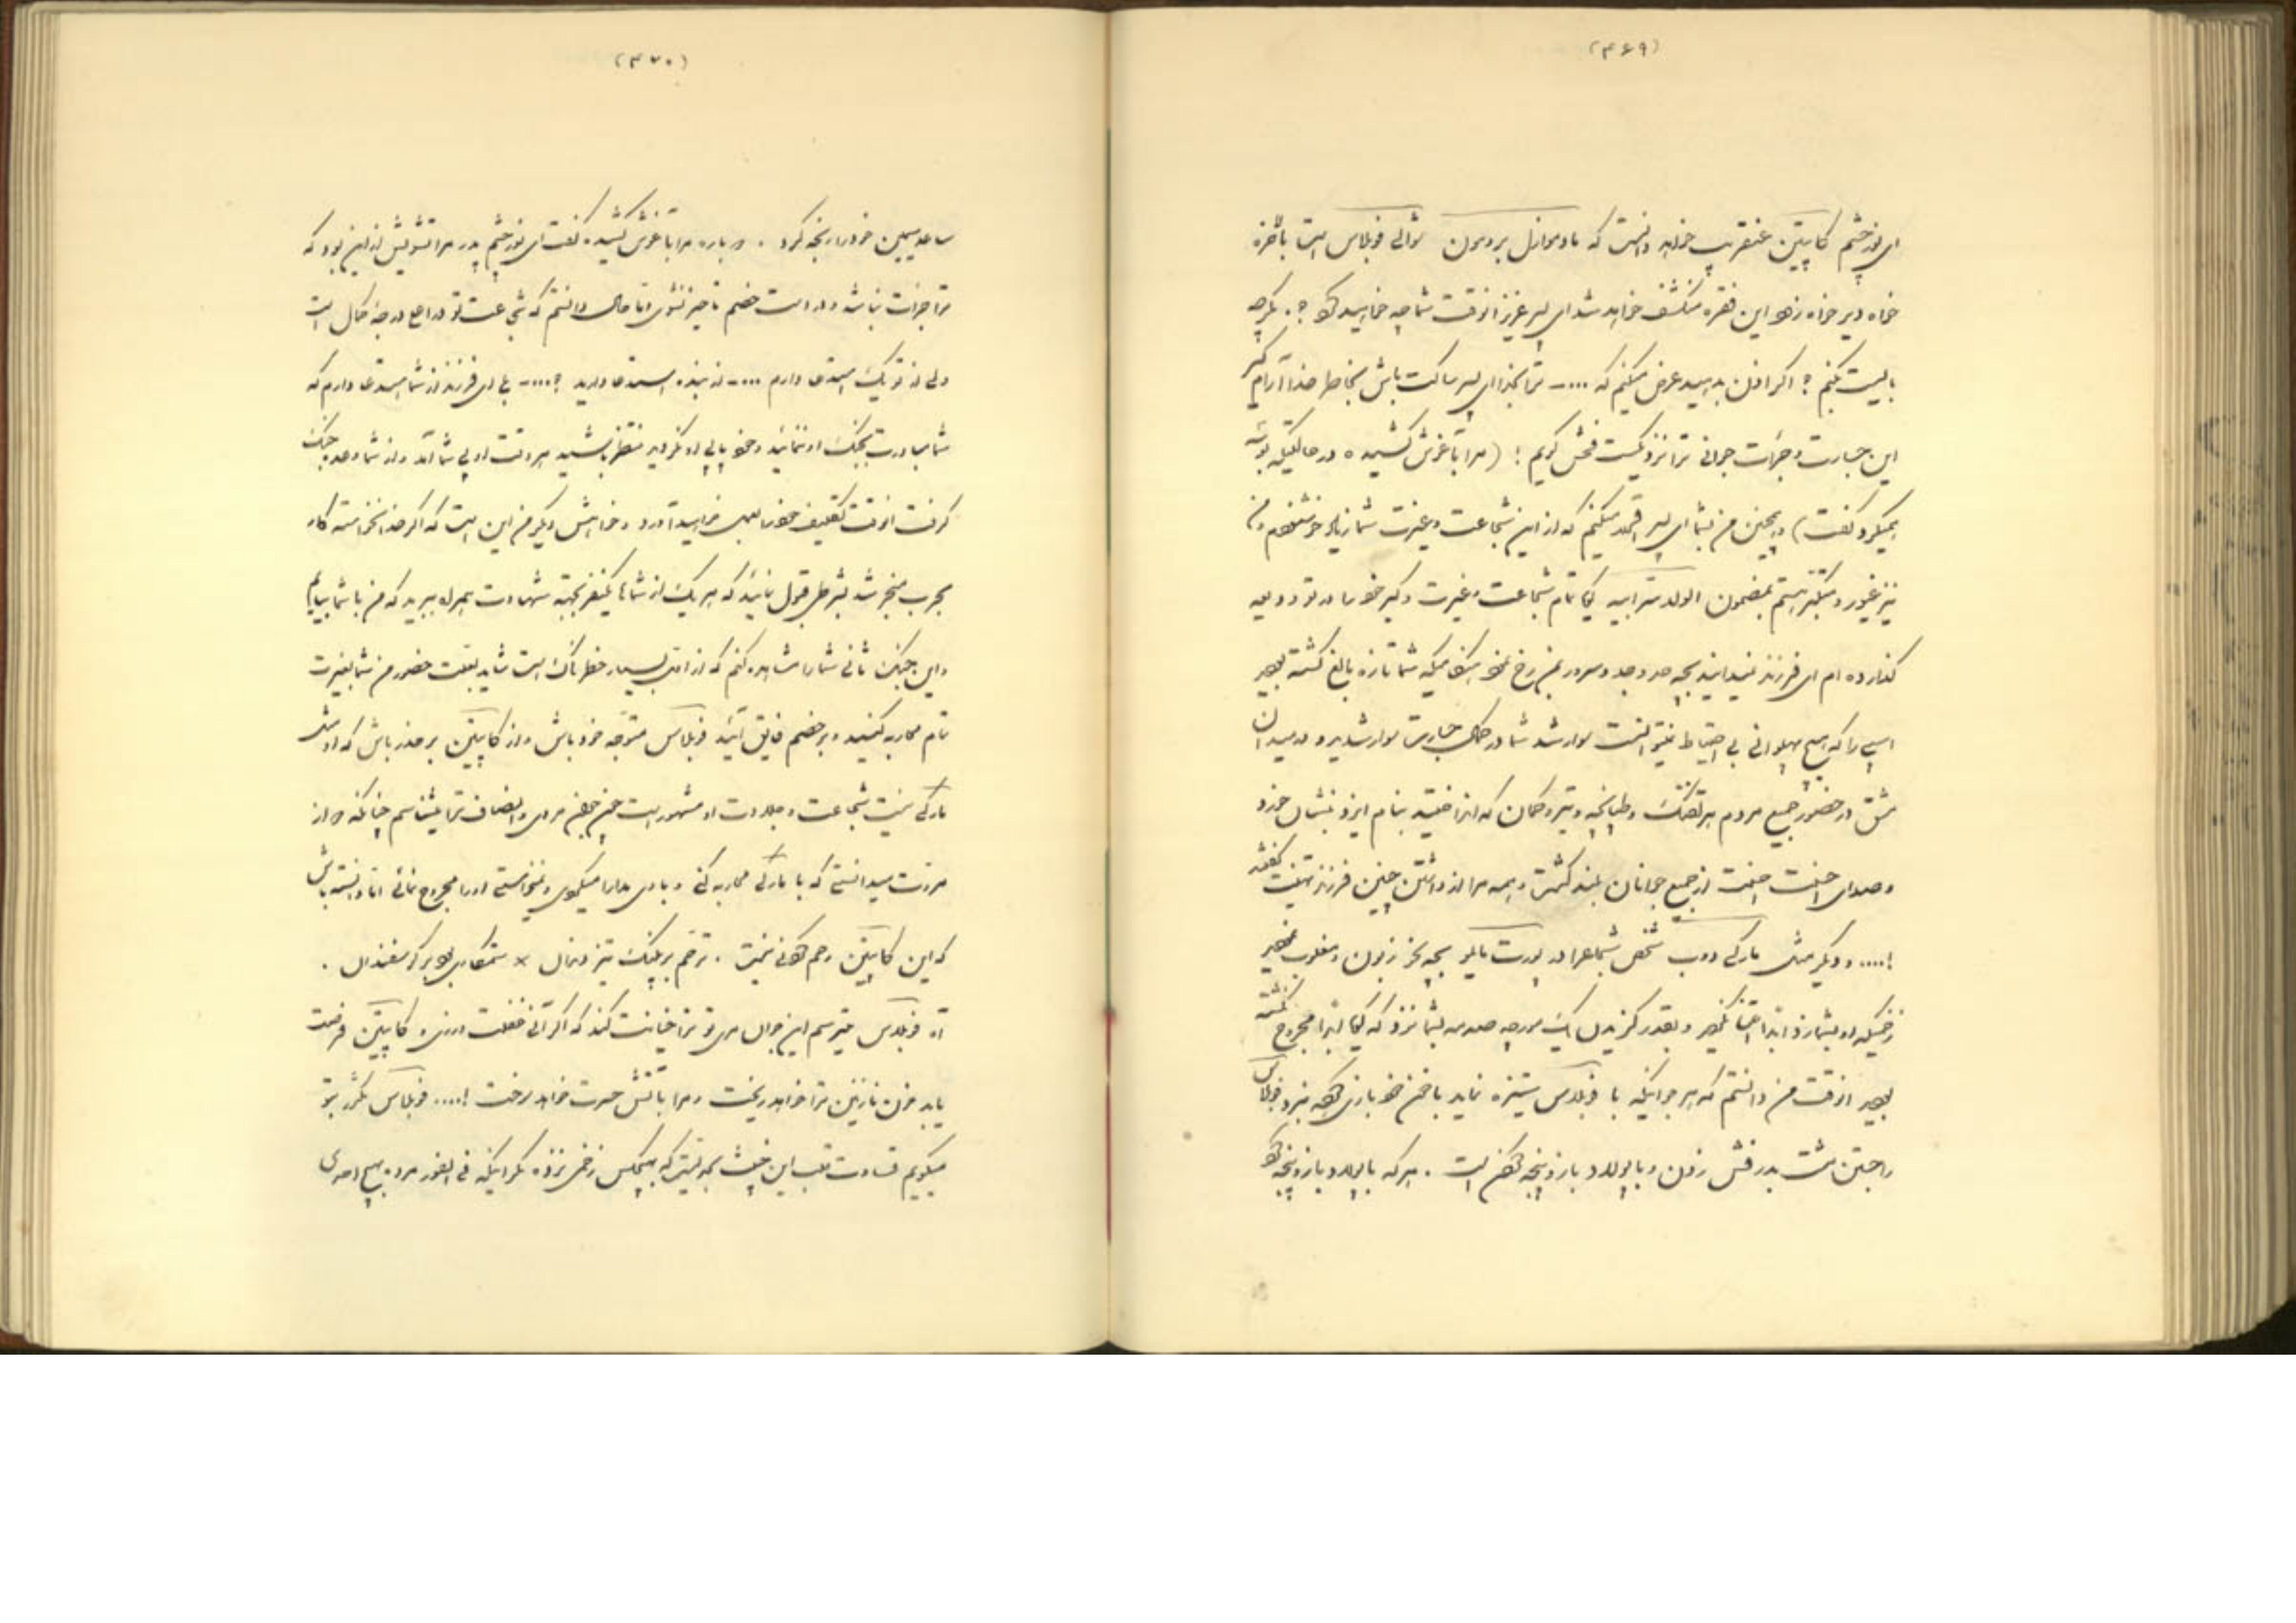 (۴۶۹)
ای نور چشم کاپیتن عنقریب خواهد دانست که مادموازل بردمون شوالی فوبلاس است بالاخره
خواه دیر خواه زود این فقره منکشف خواهد شد ای پسر عزیز انوقت شما چه خواهید کرد ؟. بگو چه
بایست بکنم ؟ اگر اذن بدهید عرض میکنم که .... ترا بخدا ای پسر ساکت باش بخاطر خدا آرام گیر
این جسارت و جرئت جوانی ترا نزدیکست فحش گویم ! (مرا بآغوش کشیده در حالتیکه بوسه
میکرد گفت) و همچنین من بشما ای پسر اقرار میکنم که از این شجاعت و غیرت شما زیاد خوشنودم و من
نیز غیور و متکبر هستم بمضمون الولد سر ابیه گویا تمام شجاعت و غیرت و کبر خود را در تو ودیعه
گذارده ام ای فرزند نمیدانید بچه حد وجد و سرور بمن رخ نمود هنگامیکه شما تازه بالغ گشته بودید
اسبی را که هیچ پهلوانی بی احتیاط نمیتوانست سوار شد شما در کمال جسارت سوار شدید و در میدان
مشق در حضور جمیع مردم هر تفنگ و طپانچه و تیر و کمان که انداختید بتمام ایزو نشان خورد
و صدای احسنت احسنت از جمیع جوانان بلند گشت و همه مرا از داشتن چنین فرزند تهنیت گفتند
!.... و دیگر مثل مارکی دوب شخص شجاعرا در پورت مایو بچه نحو زبون و مغلوب نمودید
زخمیکه او بشما زد ابدا اعتنا نکردید و بقدر گزیدن یک مورچه صدمه بشما نزد که گویا ابدا مجروح نگشته
بودید انوقت من دانستم که هر جوانیکه با فوبلاس ستیزه نماید با خون خود بازی کرده نبرد فوبلاس
را جستن مشت بدرفش زدن و با پولاد بازو پنجه کردن است . هر که با پولاد بازو پنجه کرد
(۴۷۰)
ساعد سیمین خود را رنجه کرد . دوباره مرا بآغوش کشیده گفت ای نور چشم پدر مرا تشویش از این بود که
ترا جرئت نباشد و از دست خصم ناچیز شوی اما حال دانستم که شجاعت تو در اعلا درجهٔ کمال است
ولی از تو یک استدعا دارم .... از بنده استدعا دارید ؟.... بلی ای فرزند از شما استدعا دارم که
شما مبادرت بجنک او ننمائید و خود بپای او نروید منتظر باشید هر وقت او پی شما آمد و از شما وعده جنک
گرفت انوقت تکلیف خود را بعمل خواهید آورد و خواهش دیگر من این است که اگر خدا نخواسته کار
بحرب منجر شد بشرطی قبول نمائید که هر یک از شما یکنفر بجهة شهادت همراه ببرید که من با شما بیایم
و این جنک ثانی شما را مشاهده کنم که از اولی بسیار خطرناک است شاید بعلت حضور من شما بغیرت
تمام محاربه کنید و بر خصم فایق آئید فوبلاس متوجه خود باش و از کاپیتن بر حذر باش که او مثل
مارکی نیست شجاعت و جلادت او مشهور است من مردی و انصاف ترا میشناسم چنانکه از
مروت میدانستی که با مارکی محاربه کنی و با وی مدارا میکردی و نمیخواستی او را مجروح نمائی اما دانسته باش
که این کاپیتن رحم کردنی نیست . ترحم بر پلنک تیز دندان × ستمکاری بود بر گوسفندان .
آه فوبلاس میترسم این جوان مردی تو ترا خیانت کند که اگر آنی غفلت ورزی و کاپیتن فرصت
یابد خون نازنین ترا خواهد ریخت و مرا بآتش حسرت خواهد سوخت !.... فوبلاس مکرر بتو
میگویم قساوت قلب این خبیث بحدیست که بهیچکس زخمی نزده مگر اینکه فی الفور مرده هیچ احدی